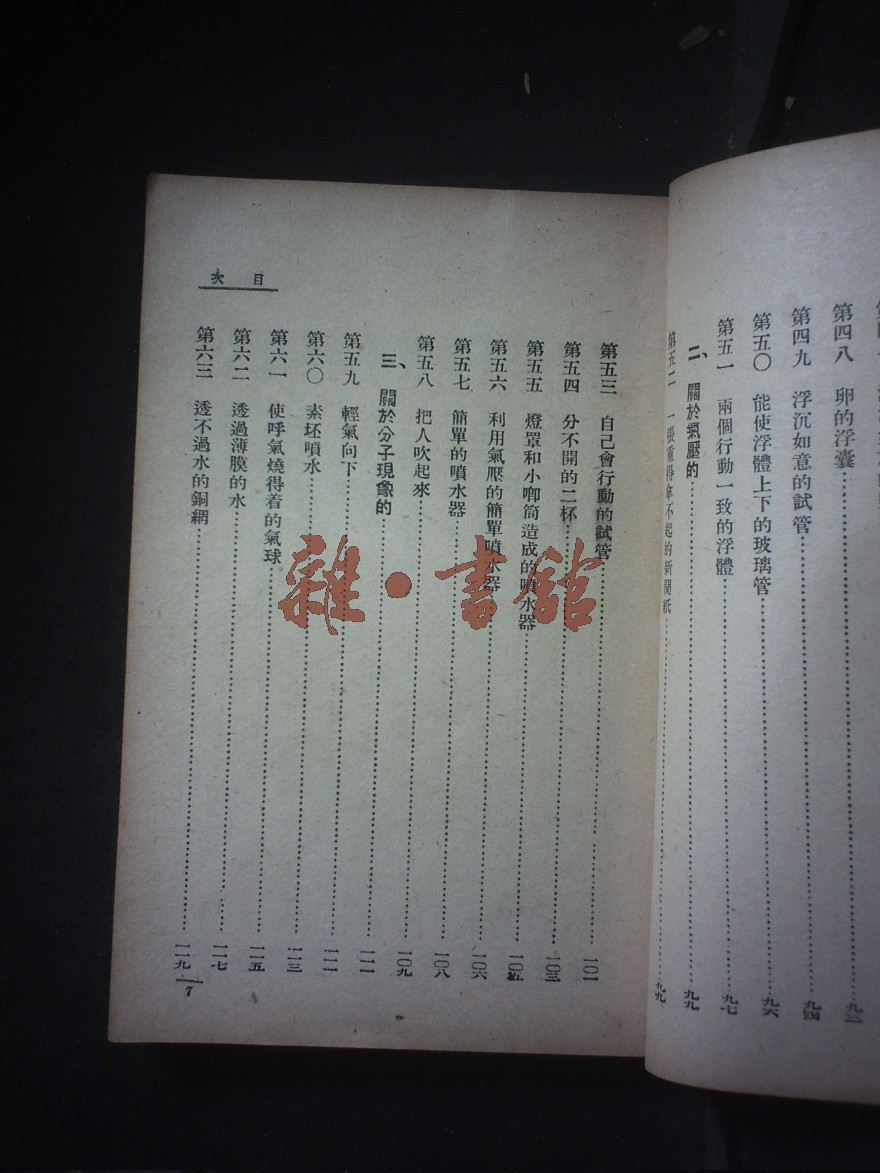 第四八 卵的浮囊
第四九 浮沉如意的試管 九四
第五〇 能使浮體上下的玻璃管 九六
第五一 兩個行動一致的浮體 九七
二、關於氣壓的 九九
第五二 一張重得拿不起的新聞紙 九九
目次
第五三 自己會行動的試管 一〇一
第五四 分不開的二杯 一〇三
第五五 燈罩和小喞筒造成的噴水器 一〇五
第五六 利用氣壓的簡單噴水器 一〇六
第五七 簡單的噴水器 一〇八
第五八 把人吹起來 一〇九
三、關於分子現象的 一一一
第五九 輕氣向下 一一一
第六〇 素坯噴水 一一三
第六一 使呼氣燒得着的氣球 一一五
第六二 透過薄膜的水 一一七
第六三 透不過水的銅網 一一九
7
雜·書館